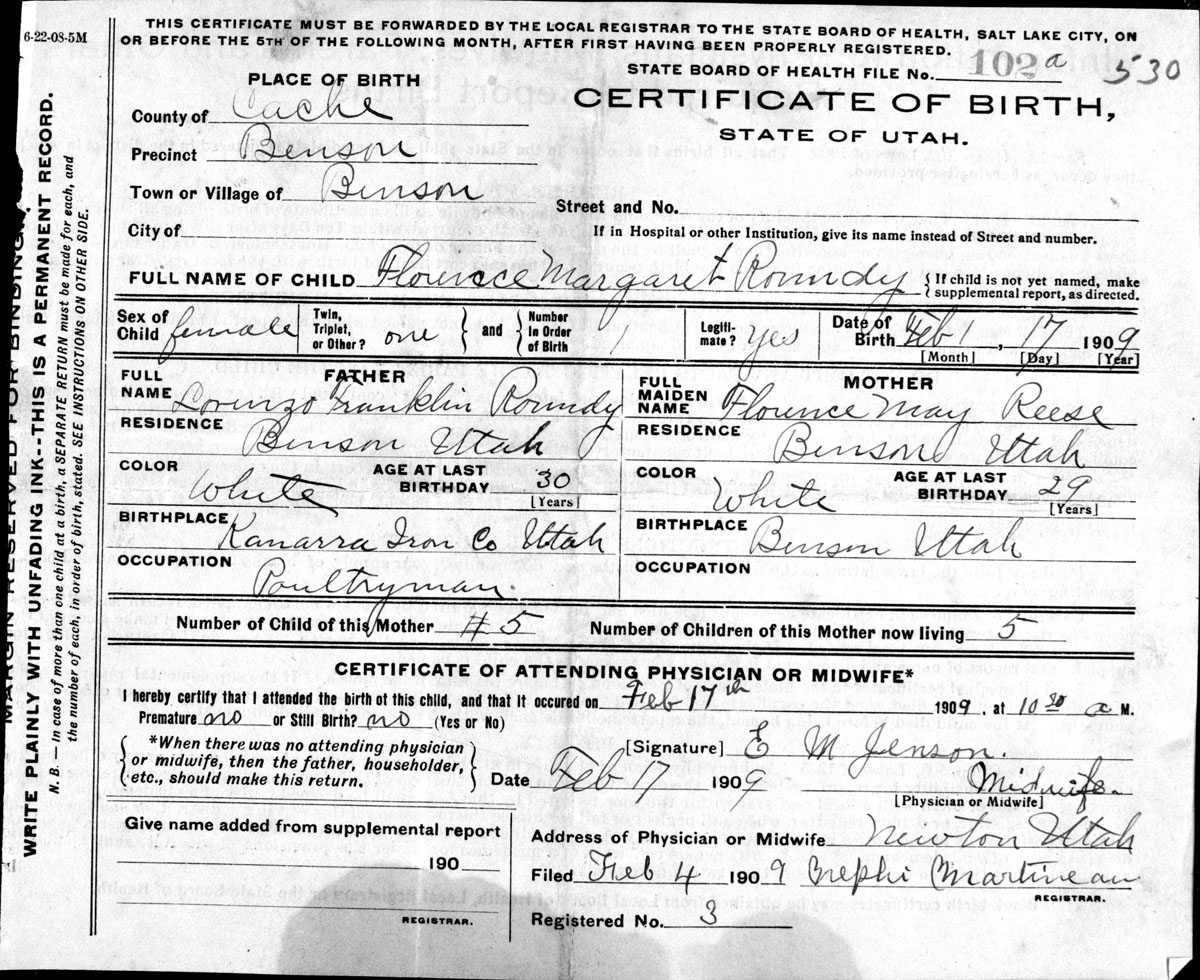 6-22-08-5M
THIS CERTIFICATE MUST BE FORWARDED BY THE LOCAL REGISTRAR TO THE STATE BOARD OF HEALTH, SALT LAKE CITY, ON
OR BEFORE THE 5TH OF THE FOLLOWING MONTH, AFTER FIRST HAVING BEEN PROPERLY REGISTERED.
STATE BOARD OF HEALTH FILE No. 102 a 530
PLACE OF BIRTH
CERTIFICATE OF BIRTH,
STATE OF UTAH.
County of Cache
Precinct Benson
Town or Village of Benson
Street and No.
City of
If in Hospital or other Institution, give its name instead of Street and number.
FULL NAME OF CHILD Florence Margaret Roundy { If child is not yet named, make
supplemental report, as directed.
Sex of Child female Twin, Triplet, or Other? one } and { Number in Order of Birth 1 Legitimate? yes Date of Birth Feb , 17 1909
[Month] [Day] [Year]
FATHER
FULL NAME Lorenzo Franklin Roundy
RESIDENCE Benson Utah
COLOR White AGE AT LAST BIRTHDAY 30 [Years]
BIRTHPLACE Kanarra Iron Co Utah
OCCUPATION Poultryman.
MOTHER
FULL MAIDEN NAME Florence May Reese
RESIDENCE Benson Utah
COLOR White AGE AT LAST BIRTHDAY 29 [Years]
BIRTHPLACE Benson Utah
OCCUPATION
Number of Child of this Mother # 5 Number of Children of this Mother now living 5
CERTIFICATE OF ATTENDING PHYSICIAN OR MIDWIFE*
I hereby certify that I attended the birth of this child, and that it occured on Feb 17th 1909. at 10 30 a M.
Premature no or Still Birth? no (Yes or No)
{ *When there was no attending physician
or midwife, then the father, householder,
etc., should make this return. }
[Signature] E M Jenson.
Date Feb 17 1909 Midwife.
[Physician or Midwife]
Give name added from supplemental report
190
REGISTRAR.
Address of Physician or Midwife Newton Utah
Filed Feb 4 1909 Nephi Martineau
REGISTRAR.
Registered No. 3
MARGIN RESERVED FOR BINDING.
WRITE PLAINLY WITH UNFADING INK--THIS IS A PERMANENT RECORD.
N. B. — In case of more than one child at a birth, a SEPARATE RETURN must be made for each, and
the number of each, in order of birth, stated. SEE INSTRUCTIONS ON OTHER SIDE.